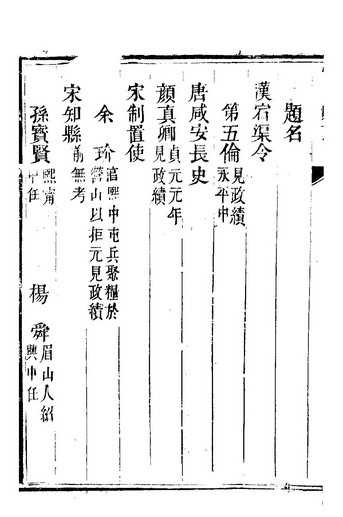 題名
漢宕渠令
第五倫 永平中見政績
唐咸安長史
顔真卿 貞元元年見政績
宋制置使
余玠 淳熙中屯兵聚糧於營山以拒元見政績
宋知縣 前無考
孫寳賢 熙甯中任 楊舜 眉山人紹興中任